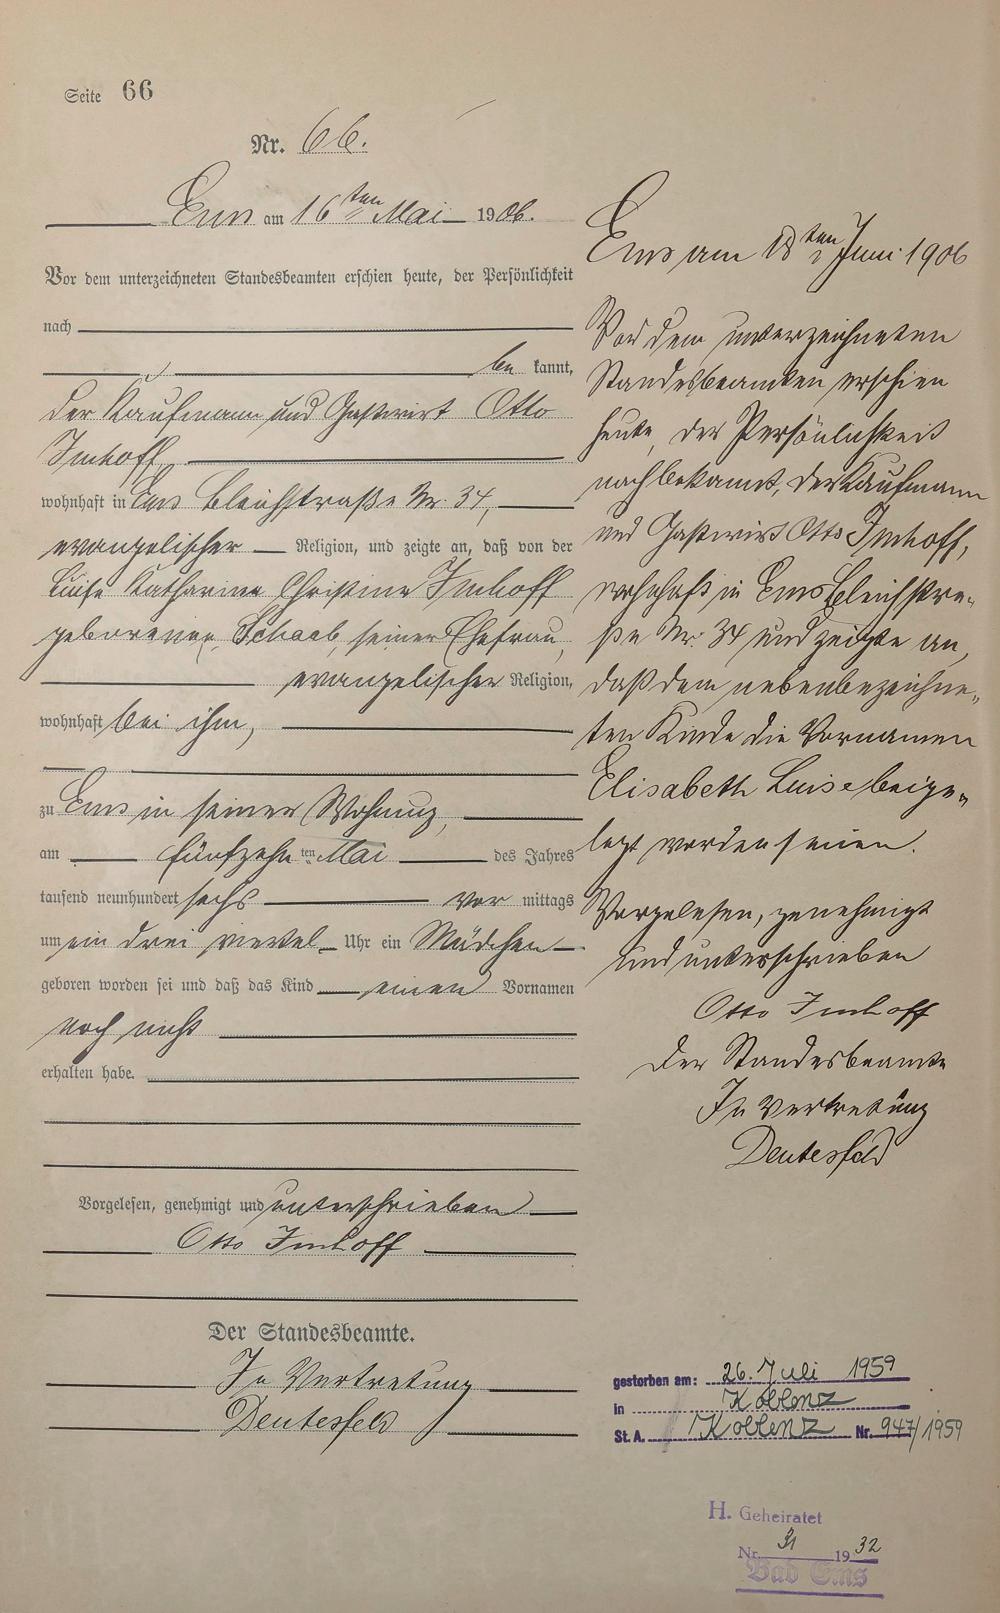 Seite 66
Nr. 66.
Ems am 16ten Mai 1906.
Vor dem unterzeichneten Standesbeamten erschien heute, der Persönlichkeit
nach
be kannt,
der Kaufmann und Gastwirt Otto
Imhoff
wohnhaft in Ems Bleichstraße Nr. 34,
evangelischer Religion, und zeigte an, daß von der
Luise Katharina Christine Imhoff
geborenen Schaab, seiner Ehefrau,
evangelischer Religion,
wohnhaft bei ihm,
zu Ems in seiner Wohnung,
am fünfzehnten Mai des Jahres
tausend neunhundert sechs vor mittags
um ein drei viertel Uhr ein Mädchen
geboren worden sei und daß das Kind einen Vornamen
noch nicht
erhalten habe.
Vorgelesen, genehmigt und unterschrieben
Otto Imhoff
Der Standesbeamte.
In Vertretung
Deutesfeld
Ems am 18ten Juni 1906
Vor dem unterzeichneten
Standesbeamten erschien
heute, der Persönlichkeit
nach bekannt, der Kaufmann
und Gastwirt Otto Imhoff,
wohnhaft in Ems Bleichstra-
ße Nr. 34 und zeigte an,
daß dem nebenbezeichne-
ten Kinde die Vornamen
Elisabeth Luise beige-
legt worden seien.
Vorgelesen, genehmigt
und unterschrieben
Otto Imhoff
Der Standesbeamte
In Vertretung
Deutesfeld
gestorben am: 26. Juli 1959
in Koblenz
St. A. Koblenz Nr. 947/1959
H. Geheiratet
Nr. 31 1932
Bad Ems